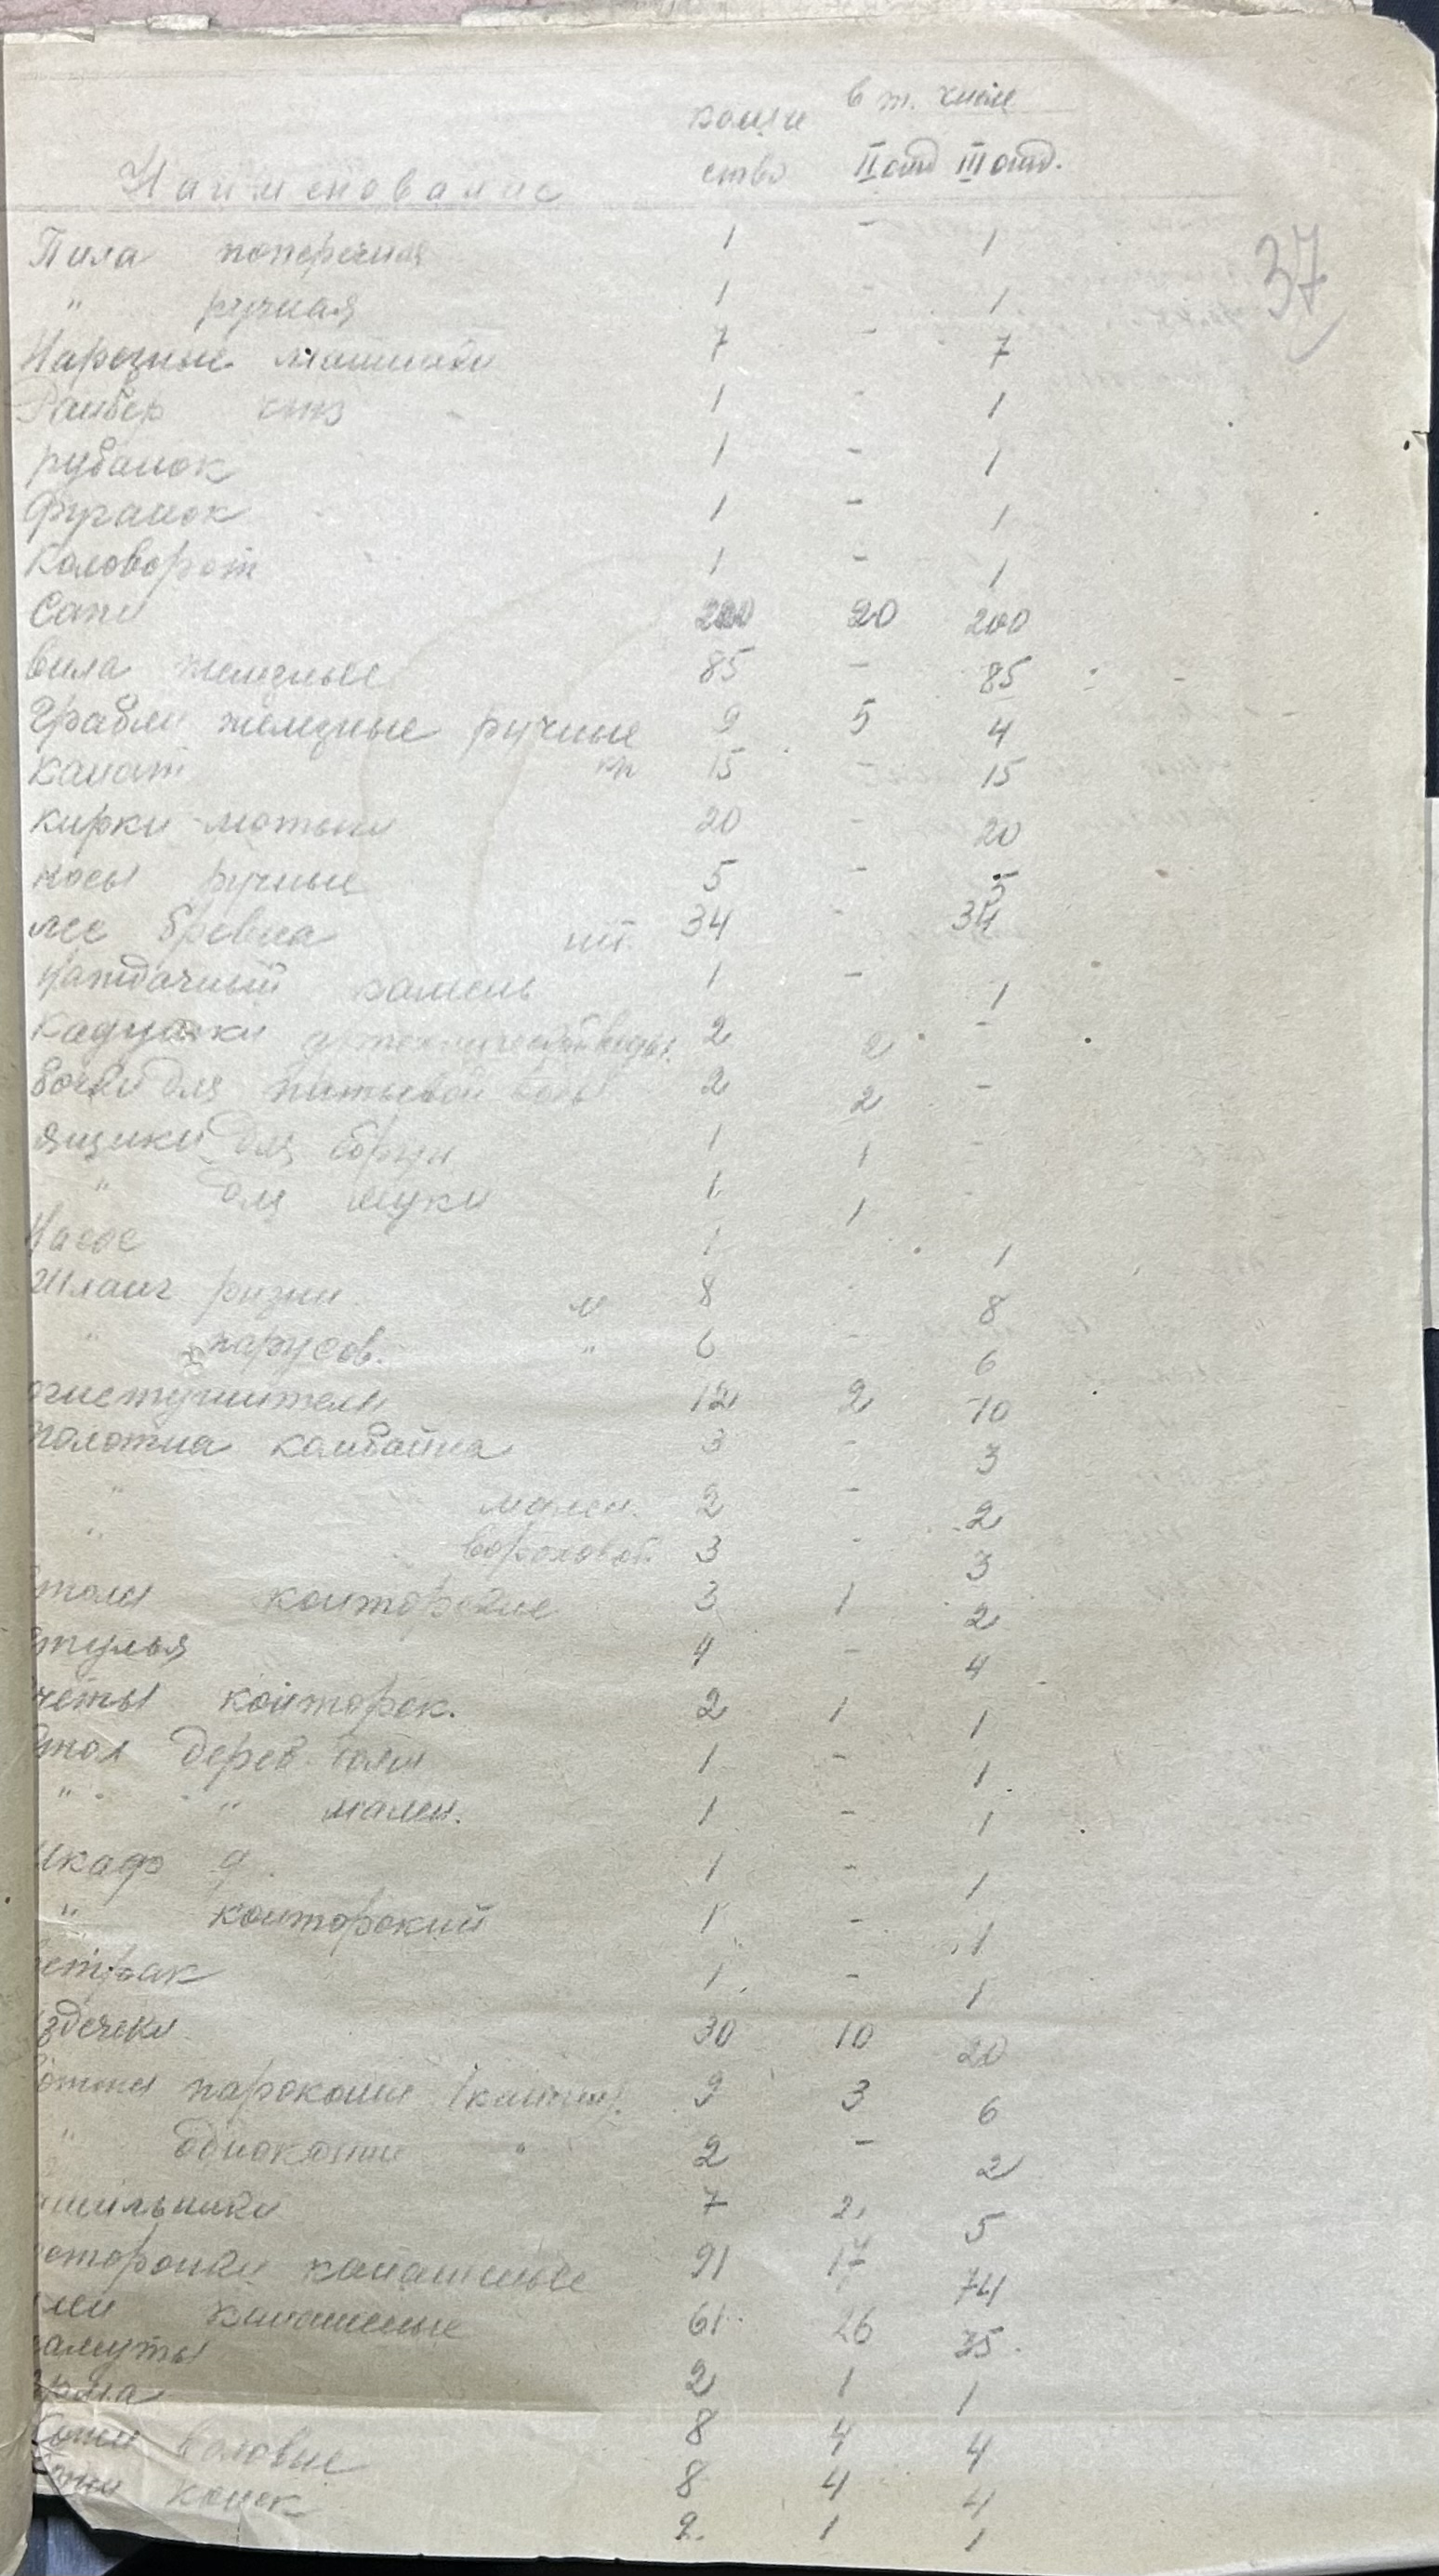 в т. числе
количе
Наименование ство II отд III отд.
37
Пила поперечная 1 - 1
" ручная 1 - 1
Нарезные 7 - 7
1 - 1
рубанок 1 - 1
Фуганок 1 - 1
Коловорот 1 - 1
Сапы 220 20 200
вила железные 85 - 85
Грабли железные ручные 9 5 4
Канат кг 15 - 15
кирки-мотыги 20 - 20
косы ручные 5 - 5
лес бревна шт. 34 - 34
Наждачный камень 1 - 1
Кадушки 2 2 -
Бочки для питьевой воды 2 2 -
Ящики для сбруи 1 1 -
" для муки 1 1 -
Насос 1 1
Шланг резин. м 8 8
" парусов. " 6 - 6
огнетушители 12 2 10
полотна комбайна 3 - 3
" мален. 2 - 2
" 3 - 3
столы конторские 3 1 2
стулья 4 - 4
счеты конторск. 2 1 1
Стол дерев. 1 - 1
" " мален. 1 - 1
Шкаф д. 1 - 1
" конторский 1 - 1
1 - 1
уздечки 30 10 20
пароконн. 9 3 6
" одноконн. " 2 - 2
7 2 5
постромки канатные 91 17 74
канатные 61 26 35
хомуты 2 1 1
Ярма 8 4 4
воловие 8 4 4
конск 2 1 1